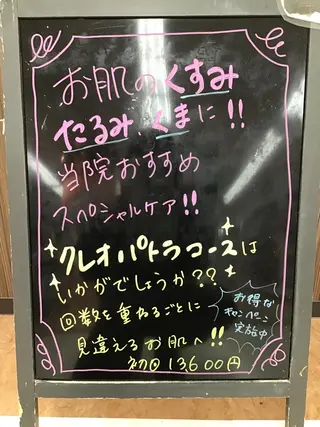 お肌のくすみ
たるみ、くまに!!
当院おすすめ
スペシャルケア!!
クレオパトラコースは
いかがでしょうか??
回数を重ねるごとに
見違えるお肌へ!!
お得な
キャンペーン
実施中
初回13600円